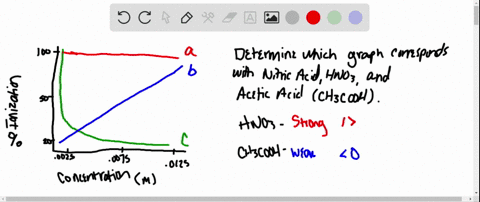 100
50
20
% Ionization
.0025
.0075
.0125
Concentration (M)
a
b
c
Determine which graph corresponds
with Nitric Acid, HNO3, and
Acetic Acid (CH3COOH).
HNO3 - Strong 1>
CH3COOH - Weak <0